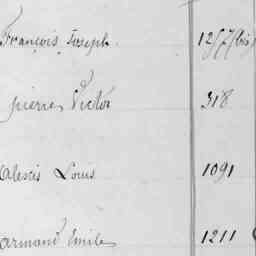 François Joseph. 12/7 (bis)
Pierre Victor 318
Alexis Louis 1091
Armand Emile 1211